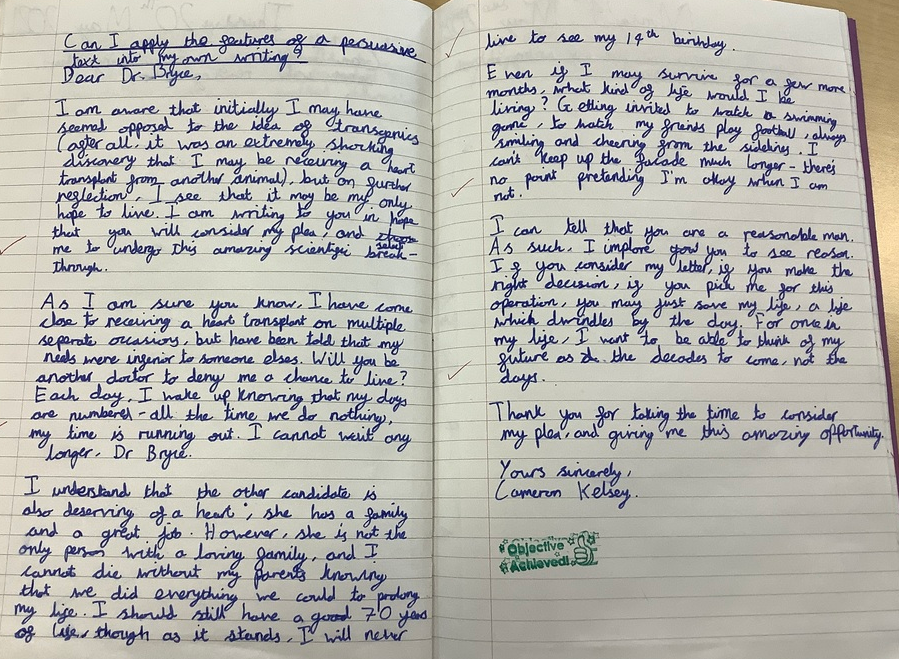 Can I apply the features of a persuasive
text into my own writing?
Dear Dr. Bryce,
I am aware that initially I may have
seemed opposed to the idea of transgenics
(after all, it was an extremely shocking
discovery that I may be receiving a heart
transplant from another animal), but on further
reflection, I see that it may be my only
hope to live. I am writing to you in hope
that you will consider my plea, and choose
select
me to undergo this amazing scientific break-
through.
As I am sure you know, I have come
close to receiving a heart transplant on multiple
separate occasions, but have been told that my
needs were inferior to someone elses. Will you be
another doctor to deny me a chance to live?
Each day, I wake up knowing that my days
are numbered - all the time we do nothing,
my time is running out. I cannot wait any
longer, Dr Bryce.
I understand that the other candidate is
also deserving of a heart; she has a family
and a great job. However, she is not the
only person with a loving family, and I
cannot die without my parents knowing
that we did everything we could to prolong
my life. I should still have a good 70 years
of life, though as it stands, I will never
live to see my 14th birthday.
Even if I may survive for a few more
months, what kind of life would I be
living? Getting invited to watch a swimming
game, to watch my friends play football, always
smiling and cheering from the sidelines. I
can't keep up the facade much longer - there's
no point pretending I'm okay when I am
not.
I can tell that you are a reasonable man.
As such, I implore you to see reason.
If you consider my letter, if you make the
right decision, if you pick me for this
operation, you may just save my life, a life
which dwindles by the day. For once in
my life, I want to be able to think of my
future as the decades to come, not the
days.
Thank you for taking the time to consider
my plea, and giving me this amazing opportunity.
Yours sincerely,
Cameron Kelsey.
Objective
Achieved!